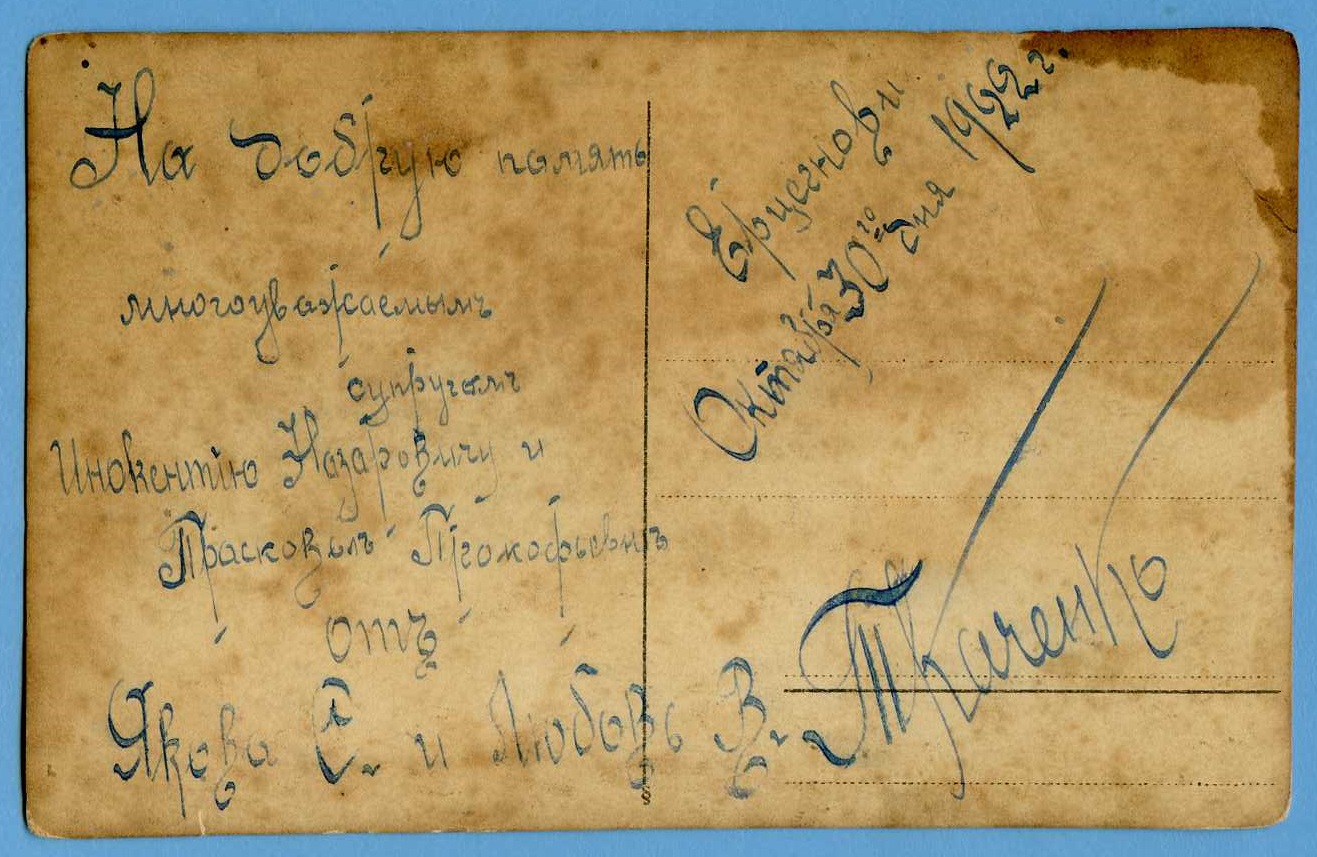 На добрую память
многоуважаемымъ
супругамъ
Инокентію Назаровичу и
Прасковьѣ Прокофьевнѣ
отъ
Якова Е. и Любовь В. Ткаченко
Ерцегнови
Октября 30го дня 1922 г.